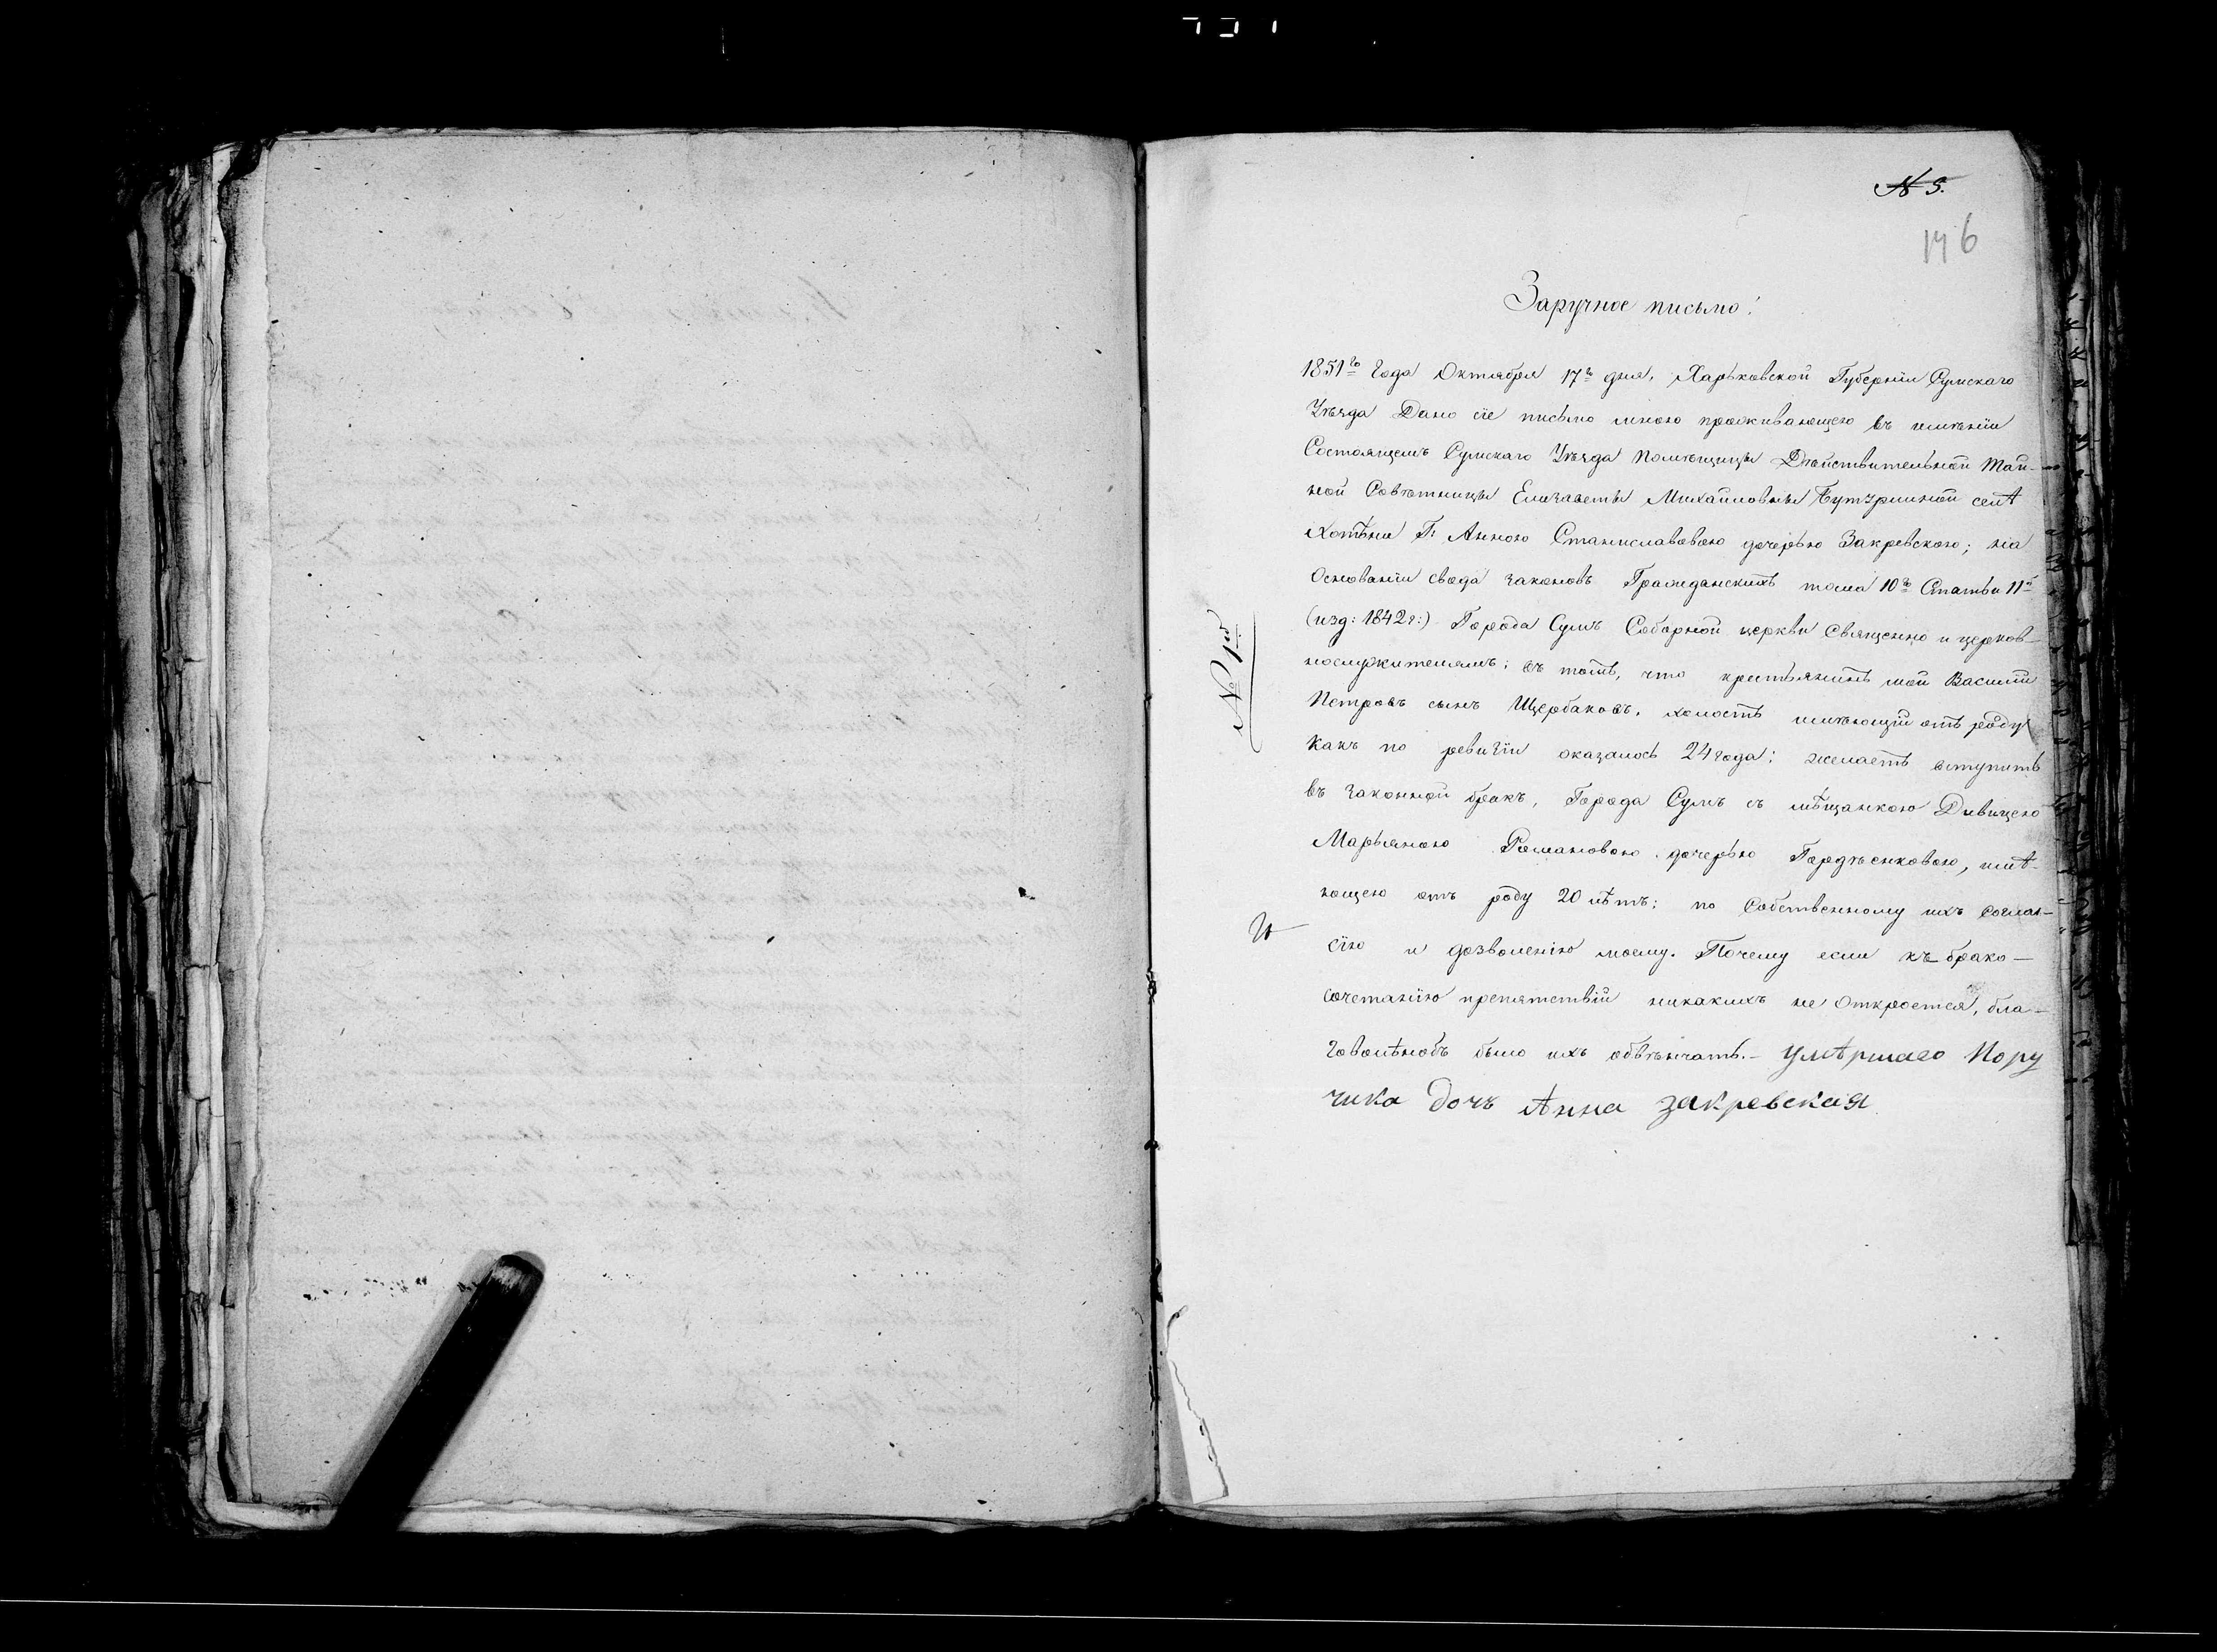 № 5.
146
Заручное письмо!
1851го Года Октября 17го дня, Харьковской Губерніи Сумскаго
Уѣзда Дано сіе письмо мною проживающею въ имѣніи
Состоящемъ Сумскаго Уѣзда Помѣщицы Дѣйствительной Тай-
ной Совѣтницы Елизаветы Михайловны Бутурлиной селѣ
Хотѣни Г: Анною Станиславовою дочерью Закревскою; на
Основаніи свода законовъ Гражданскихъ тома 10го Статьи 11й
(изд: 1842 г:) Города Сумъ Соборной церкви Священно и церков-
нослужителямъ; въ томъ, что крестьянинъ мой Василій
№ 1й
Петровъ сынъ Щербаковъ, холостъ имѣющій отъ роду
какъ по ревизіи оказалось 24 года; желаетъ вступить
въ законной бракъ, Города Сумъ съ мѣщанкою Дивицею
Марьяною Романовою дочерью Гордѣенковою, имѣ-
ющею отъ роду 20 лѣтъ; по Собственному ихъ соглас-
сію и дозволенію моему. Почему если къ брако-
сочетанію препятствій никакихъ не откроется, бла-
говолѣнобъ было ихъ обвѣнчать. - умѣршаго Пору
чика дочь Анна закревская